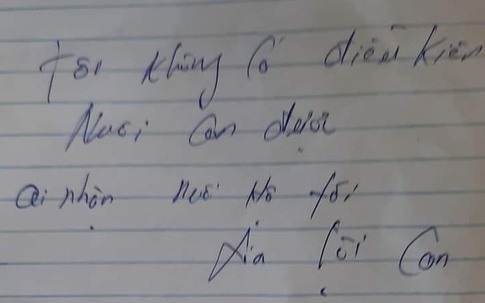 Tôi không có điều kiện
Nuôi con được
Ai nhận nuôi hộ tôi
Xin lỗi con